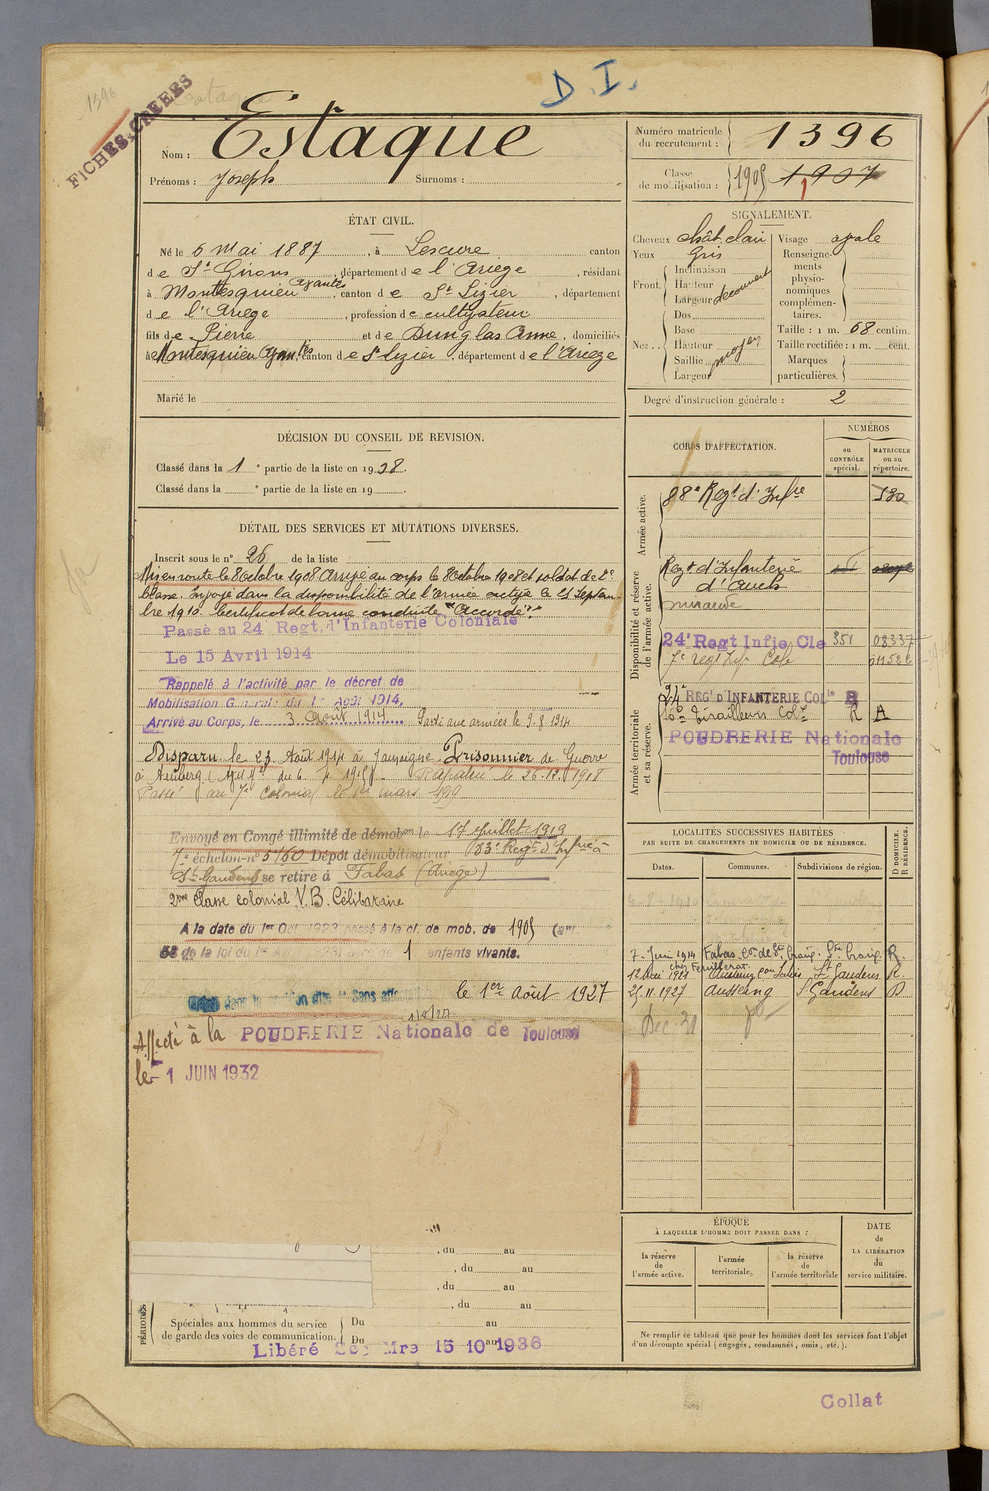 1396
FICHES CREEES
D.I.
Nom : Estaque
Prénoms : Joseph Surnoms :
Numéro matricule du recrutement : 1396
Classe de mobilisation : 1905 1907
ÉTAT CIVIL.
Né le 6 Mai 1887, à Lescure canton
de St Girons, département de l'Ariège, résidant
à Montesquieu Avantès, canton de St Lizier, département
de l'Ariège, profession de cultivateur
fils de Pierre et de Dunglas Anne, domiciliés
à Montesquieu Avantès canton de St Lizier, département de l'Ariège
Marié le
SIGNALEMENT.
Cheveux chât clair Visage ovale
Yeux Gris
Front. Inclinaison Hauteur Largeur découvert
Nez.. Dos Base Hauteur Saillie Largeur moyen
Renseignements physionomiques complémentaires.
Taille : 1 m. 68 centim.
Taille rectifiée : 1 m. cent.
Marques particulières.
Degré d'instruction générale : 2
DÉCISION DU CONSEIL DE REVISION.
Classé dans la 1e partie de la liste en 1908.
Classé dans la e partie de la liste en 19 .
DÉTAIL DES SERVICES ET MUTATIONS DIVERSES.
Inscrit sous le n° 26 de la liste
Mis en route le 8 Octobre 1908 Arrivé au corps le 8 Octobre 1908 et soldat de 2e
classe. Envoyé dans la disponibilité de l'armée active le 25 Septem-
bre 1910 Certificat de bonne conduite "Accordé".
Passé au 24 Regt. d'Infanterie Coloniale
Le 15 Avril 1914
Rappelé à l'activité par le décret de
Mobilisation Générale du 1er Août 1914.
Arrivé au Corps, le 3 Août 1914 Parti aux armées le 9-8-1914
Disparu le 23 Août 1914 à Jamoigne Prisonnier de Guerre
à Amberg Rapatrié le 26-12-1918
Passé au 7e Colonial le 1er mars 1919
Envoyé en Congé illimité de démobon le 17 Juillet 1919
7e échelon n° 5160 Dépôt démobilisateur 83e Regt d'Infrie à
St Gaudens se retire à Fabas (Ariège)
2me Classe colonial V.B. Célibataire
A la date du 1er Oct 1923 passé à la cl. de mob. de 1905 (art.
58 de la loi du 1er 1 enfants vivants.
dans la position dite "Sans affectation le 1er Août 1927
Affecté à la POUDRERIE Nationale de Toulouse
le 1 JUIN 1932
CORPS D'AFFECTATION.
NUMÉROS
au CONTRÔLE spécial.
MATRICULE ou au répertoire.
Armée active.
88e Regt d'Infrie
Disponibilité et réserve de l'armée active.
Regt d'Infanterie
d'Auch
Mirande
24e Regt Infie Cle 351 08337
7e regt Inf Cole
Armée territoriale et sa réserve.
24e REGt D'INFANTERIE COLle R
16e Tirailleurs Colx R A
POUDRERIE Nationale
Toulouse
LOCALITÉS SUCCESSIVES HABITÉES
PAR SUITE DE CHANGEMENTS DE DOMICILE OU DE RÉSIDENCE.
Dates. Communes. Subdivisions de région. D DOMICILE. R RÉSIDENCE.
7 Juin 1914 Fabas con de Ste Croix R.
12 Mai 1921 Ausseing St Gaudens R.
25.11.1927 Ausseing St Gaudens D
Dec 31
ÉPOQUE
À LAQUELLE L'HOMME DOIT PASSER DANS :
la réserve de l'armée active.
l'armée territoriale.
la réserve de l'armée territoriale
DATE de LA LIBÉRATION du service militaire.
Ne remplir ce tableau que pour les hommes dont les services font l'objet
d'un décompte spécial (engagés, condamnés, omis, etc.).
, du au
, du au
, du au
, du au
PÉRIODES
Spéciales aux hommes du service
de garde des voies de communication.
Du au
Du au
Libéré Sce Mre 15 10 1936
Collat